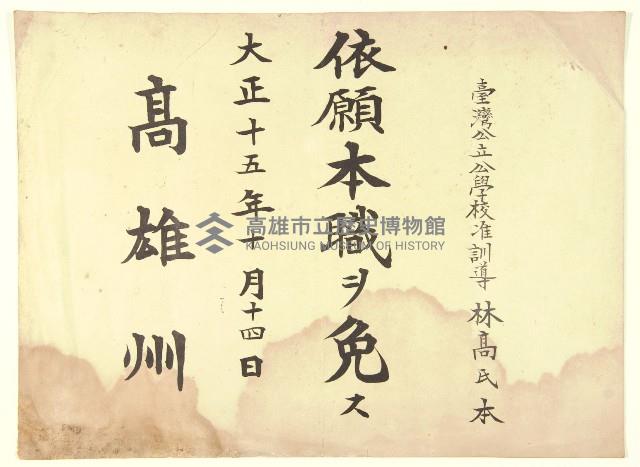 臺灣公立公學校准訓導 林髙氏本
依願本職ヲ免ス
大正十五年十月十四日
髙雄州
高雄市立歷史博物館
KAOHSIUNG MUSEUM OF HISTORY